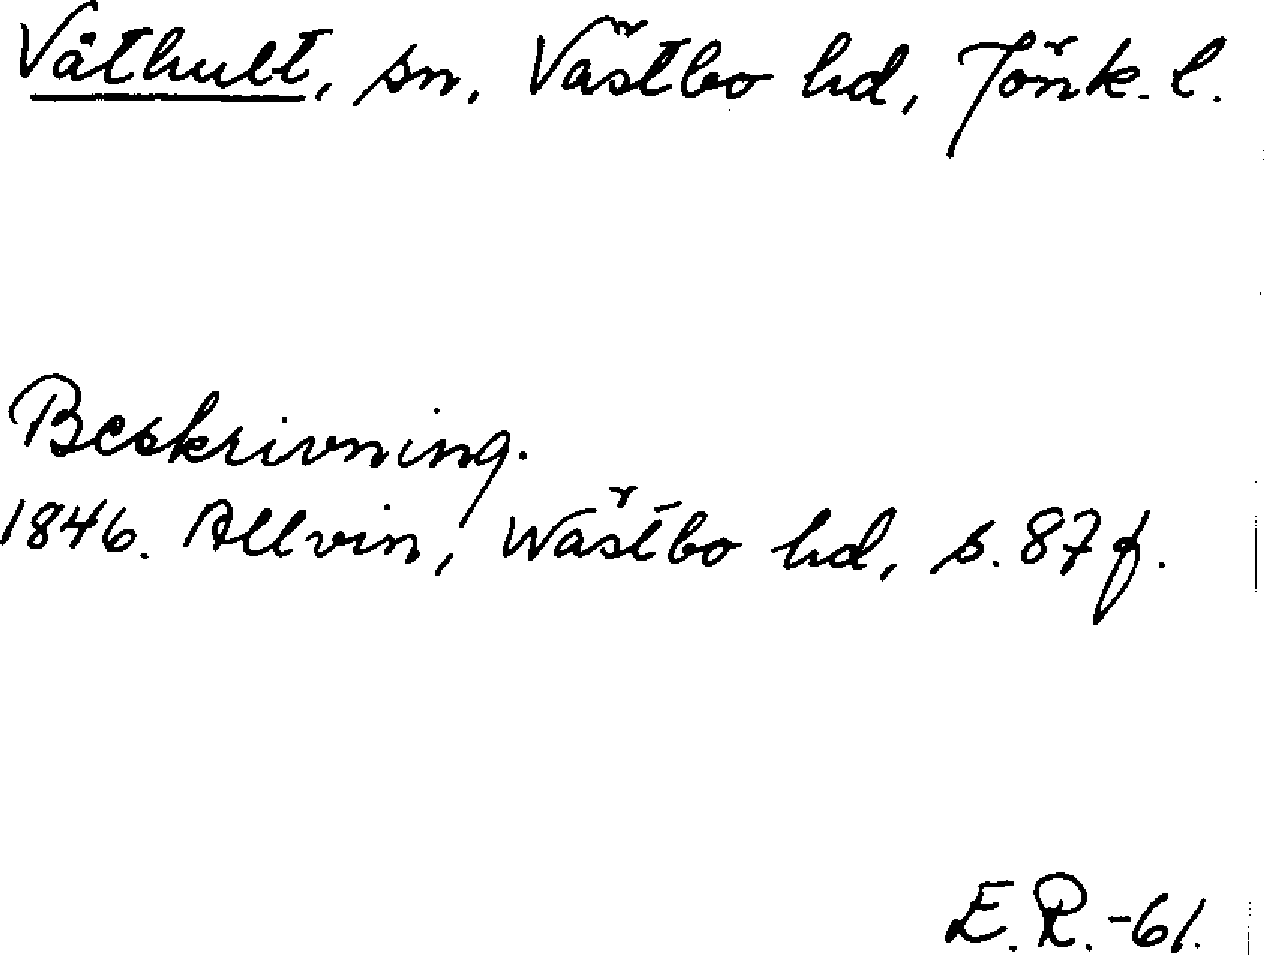 Våthult, sn, Västbo hd, Jönk. l.
Beskrivning.
1846. Allvin, Wästbo hd, s. 87 f.
E. R. -61.